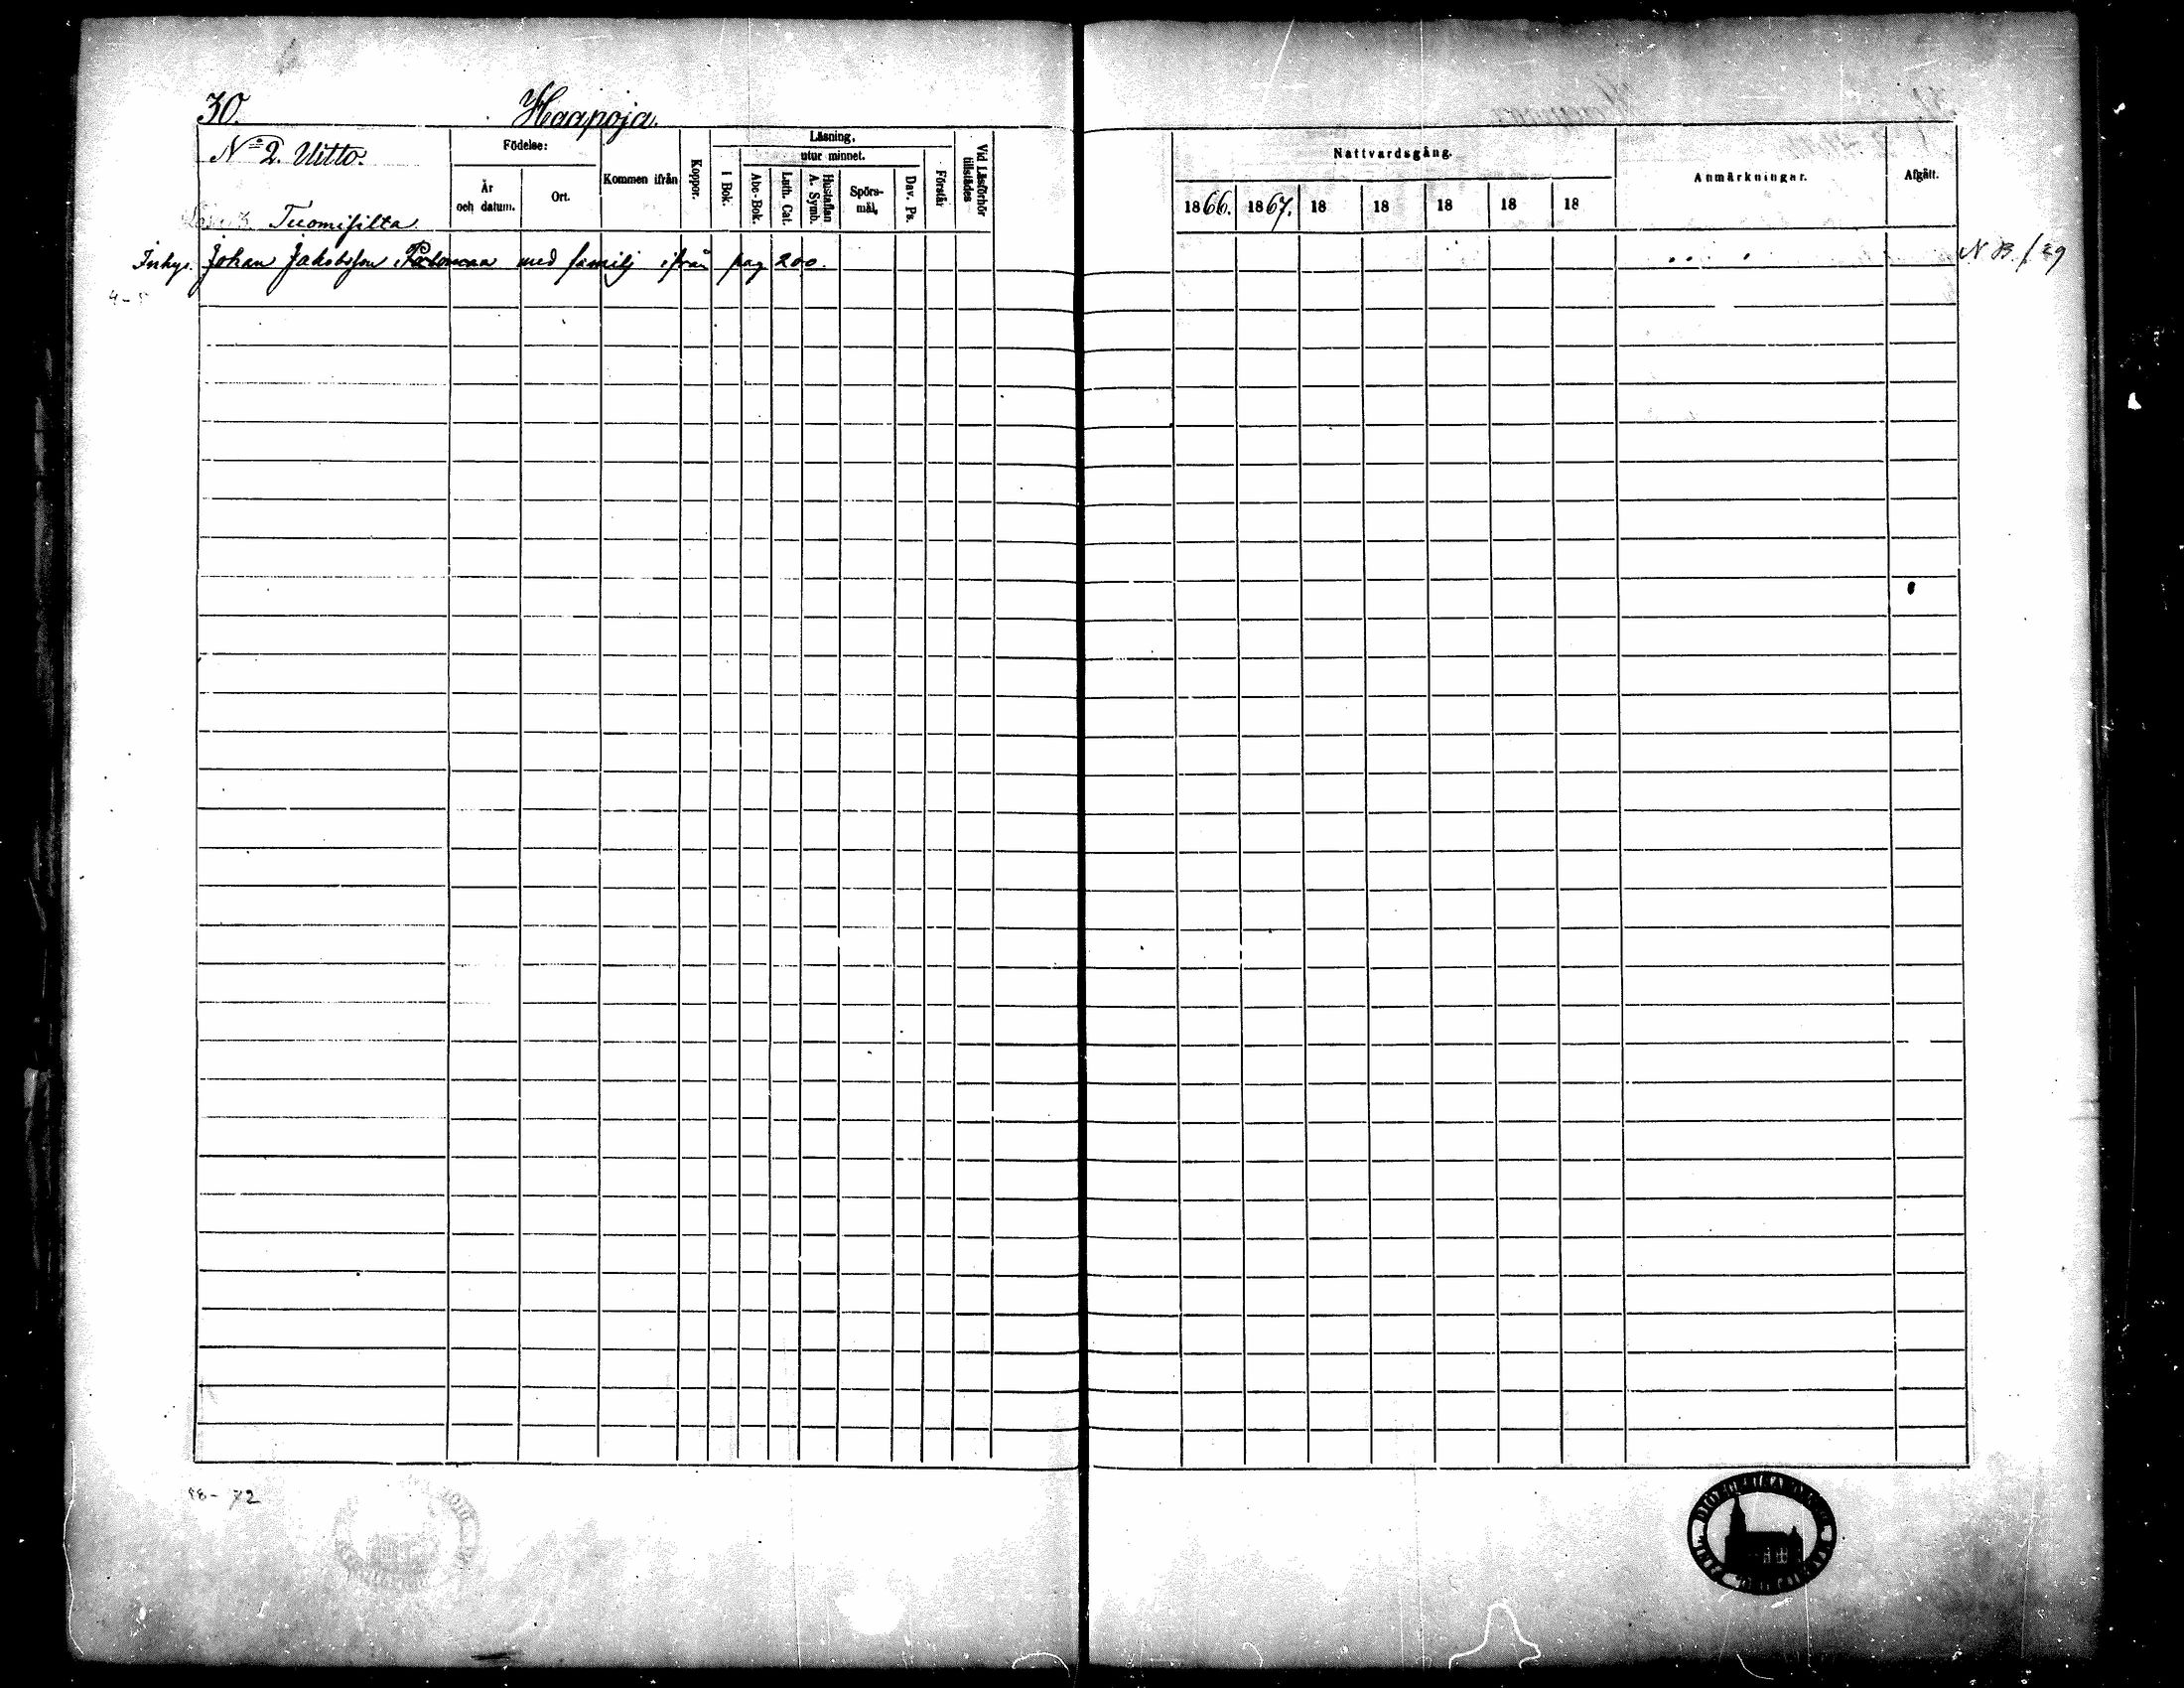 30. Haapoja.
No 2. Uitto.
Födelse:
År och datum.
Ort.
Kommen ifrån
Koppor.
Läsning,
utur minnet.
I Bok.
Abc-Bok.
Luth. Cat.
Hustaflan A. Symb.
Spörsmål,
Dav. Ps.
Förstår
Vid Läsförhör tillstädes
Nattvardsgång.
1866. 1867. 18 18 18 18 18
Anmärkningar.
Afgått.
Tuomisilta
Inhys. Johan Jakobsson med familj ifrån pag 200. N B. / 29